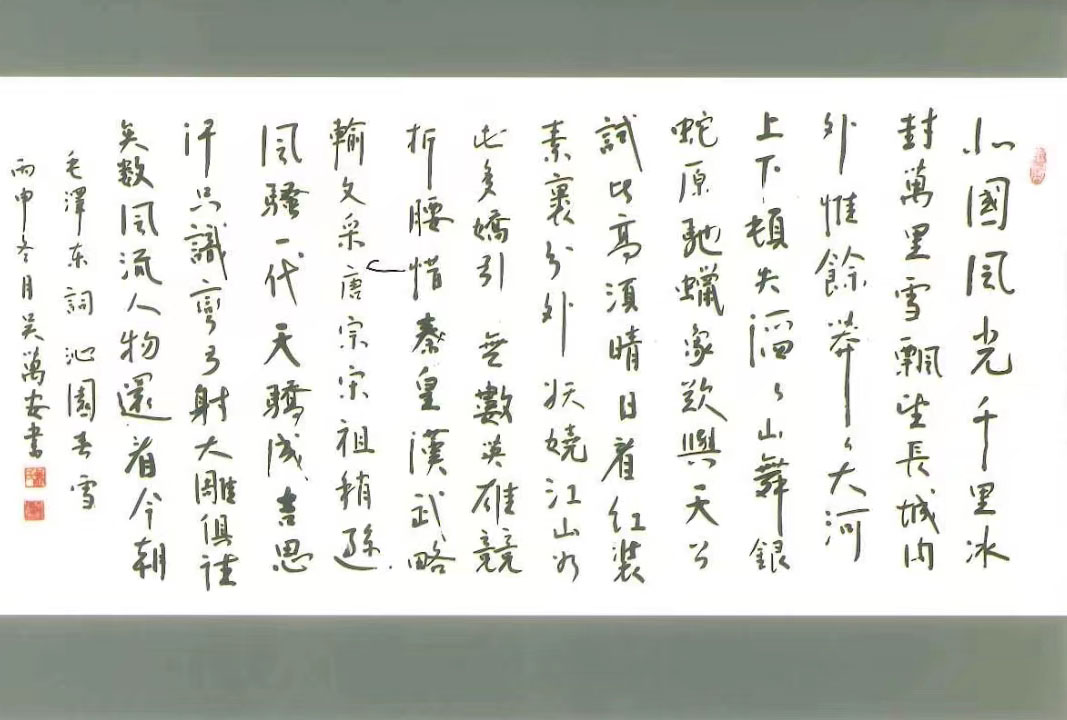 北國風光千里冰
封萬里雪飄望長城内
外惟餘莽々大河
上下頓失滔々山舞銀
蛇原馳蠟象欲與天公
試比高須晴日看紅裝
素裹分外妖嬈江山如
此多嬌引無數英雄競
折腰惜秦皇漢武略
輸文采唐宗宋祖稍遜
風騷一代天驕成吉思
汗只識彎弓射大雕俱往
矣數風流人物還看今朝
毛澤东詞沁園春雪
丙申冬月吳萬安書